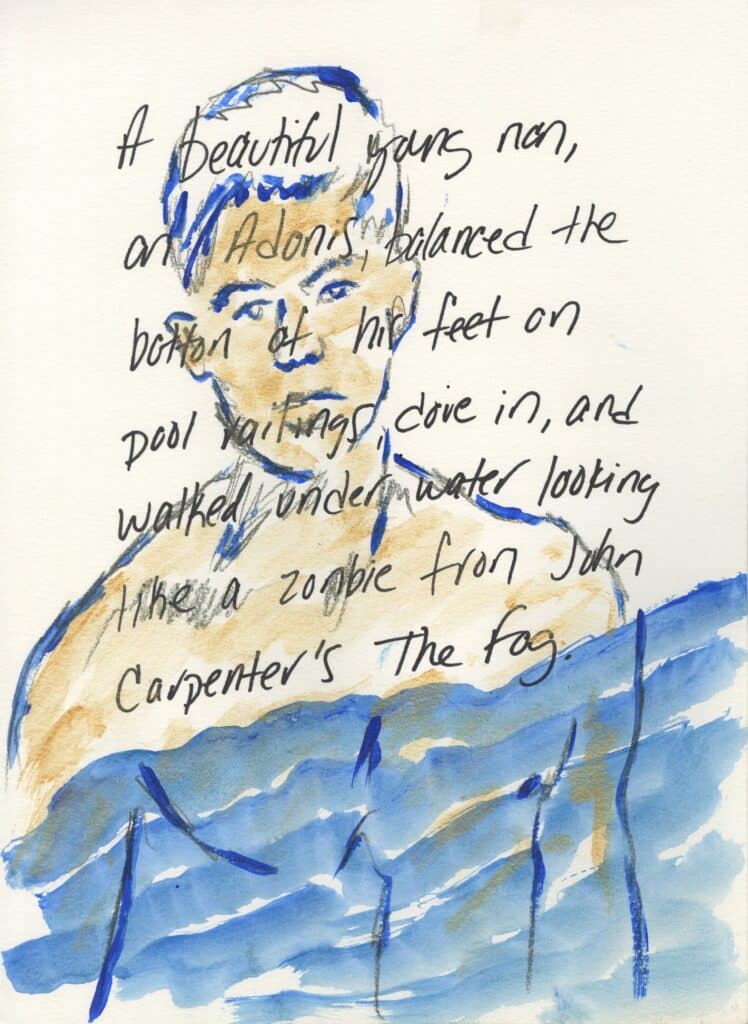 A beautiful young man,
an Adonis, balanced the
bottom of his feet on
pool railings, dove in, and
walked under water looking
like a zombie from John
Carpenter's The Fog.